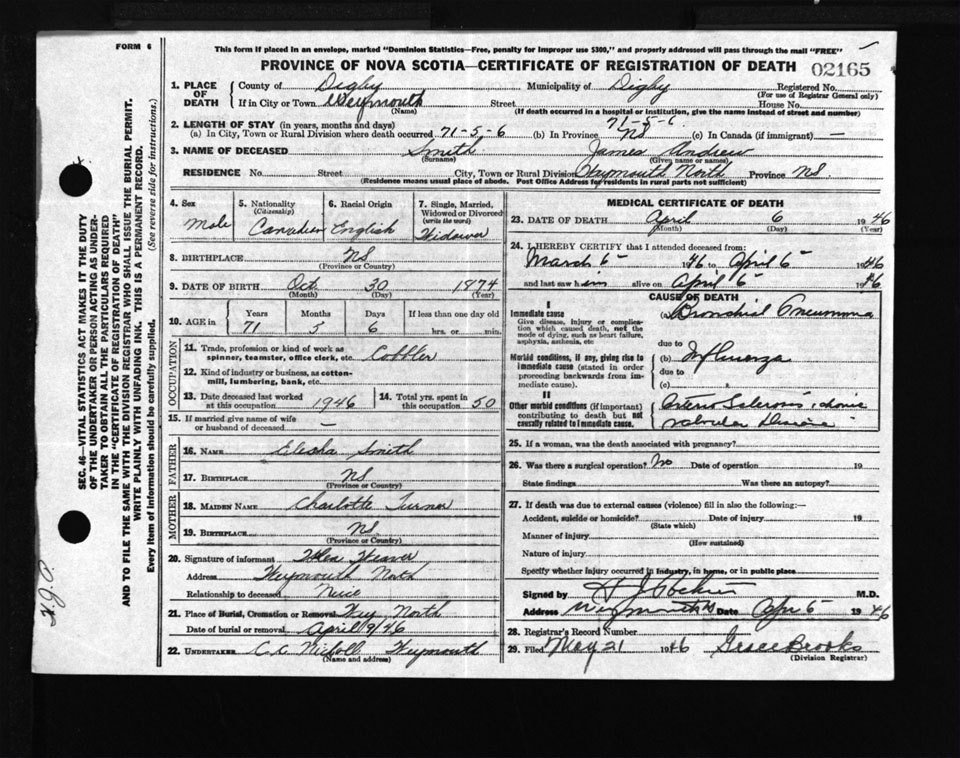 FORM 6
This form if placed in an envelope, marked "Dominion Statistics—Free, penalty for improper use $300," and properly addressed will pass through the mail "FREE"
PROVINCE OF NOVA SCOTIA—CERTIFICATE OF REGISTRATION OF DEATH 02165
1. PLACE OF DEATH County of Digby Municipality of Digby Registered No.
(For use of Registrar General only)
If in City or Town Weymouth Street House No.
(Name) (If death occurred in a hospital or institution, give the name instead of street and number)
2. LENGTH OF STAY (in years, months and days)
(a) In City, Town or Rural Division where death occurred 71-5-6 (b) In Province 71-5-6 NS (c) In Canada (if immigrant) —
3. NAME OF DECEASED Smith James Andrew
(Surname) (Given name or names)
RESIDENCE No. Street City, Town or Rural Division Weymouth North Province NS.
(Residence means usual place of abode. Post Office Address for residents in rural parts not sufficient)
4. Sex Male
5. Nationality (Citizenship) Canadian
6. Racial Origin English
7. Single, Married, Widowed or Divorced (write the word) Widower
8. BIRTHPLACE NS
(Province or Country)
9. DATE OF BIRTH Oct 30 1874
(Month) (Day) (Year)
10. AGE in Years Months Days If less than one day
71 5 6 hrs. or min.
OCCUPATION
11. Trade, profession or kind of work as spinner, teamster, office clerk, etc. Cobbler
12. Kind of industry or business, as cotton-mill, lumbering, bank, etc.
13. Date deceased last worked at this occupation 1946
14. Total yrs. spent in this occupation 50
15. If married give name of wife or husband of deceased —
FATHER
16. NAME Elisha Smith
17. BIRTHPLACE NS
(Province or Country)
MOTHER
18. MAIDEN NAME Charlotte Turner
19. BIRTHPLACE NS
(Province or Country)
20. Signature of informant Weaver
Address Weymouth North
Relationship to deceased Neice
21. Place of Burial, Cremation or Removal Wey North
Date of burial or removal April 9/46
22. UNDERTAKER C.C. Weymouth
(Name and address)
MEDICAL CERTIFICATE OF DEATH
23. DATE OF DEATH April 6 1946
(Month) (Day) (Year)
24. I HEREBY CERTIFY that I attended deceased from:
March 6 1946 to April 6 1946
and last saw him alive on April 6 1946
CAUSE OF DEATH
I
Immediate cause
Give disease, injury or complication which caused death, not the mode of dying, such as heart failure, asphyxia, asthenia, etc
(a) Bronchial Pneumonia
due to
Morbid conditions, if any, giving rise to immediate cause (stated in order proceeding backwards from immediate cause).
(b) Influenza
due to
(c)
II
Other morbid conditions (if important) contributing to death but not causally related to immediate cause.
Arterio Sclerosis, chronic
valvular Disease
25. If a woman, was the death associated with pregnancy?
26. Was there a surgical operation? No Date of operation 19
State findings Was there an autopsy?
27. If death was due to external causes (violence) fill in also the following:—
Accident, suicide or homicide? Date of injury 19
(State which)
Manner of injury
(How sustained)
Nature of injury
Specify whether injury occurred in industry, in home, or in public place
Signed by M.D.
Address Weymouth NS Date Apr 6 1946
28. Registrar's Record Number
29. Filed May 21 1946 Grace Brooks
(Division Registrar)
SEC. 46—VITAL STATISTICS ACT MAKES IT THE DUTY
OF THE UNDERTAKER OR PERSON ACTING AS UNDER-
TAKER TO OBTAIN ALL THE PARTICULARS REQUIRED
IN THE "CERTIFICATE OF REGISTRATION OF DEATH"
AND TO FILE THE SAME WITH THE DIVISION REGISTRAR WHO SHALL ISSUE THE BURIAL PERMIT.
WRITE PLAINLY WITH UNFADING INK. THIS IS A PERMANENT RECORD.
Every item of information should be carefully supplied. (See reverse side for instructions.)